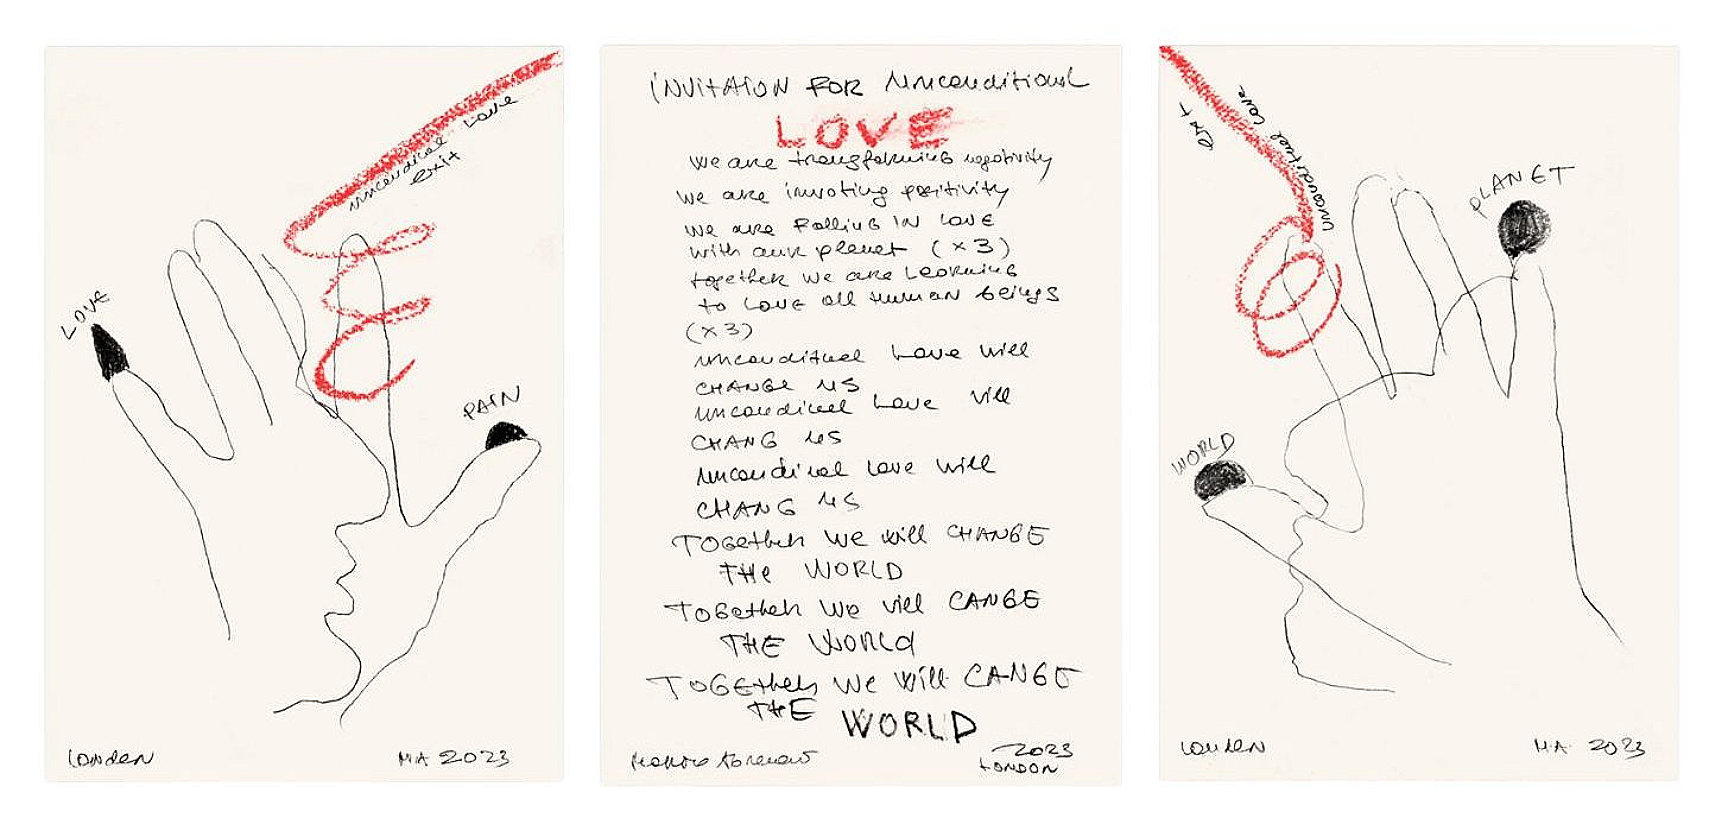 LOVE
unconditional Love
exit
PAIN
LONDEN
MA 2023
iNVitAiON FOR UNconditional
LOVE
We are transforming negativity
we are invoting positivity
we are Falling IN LOVE
with our planet (×3)
together we are Learning
to LOVE all Human beings
(×3)
unconditiual Love Will
CHANGE US
unconditinel Love Vill
CHANG US
unconditional Love Will
CHANG US
TOGether We will CHANGE
THe WORLD
TOGether We vill CANGE
THE WORLd
TOGEther We Will CANGE
THE WORLD
2023
LONDON
Exit
unconditiual Love
PLANET
WORLD
LONDEN
M.A. 2023